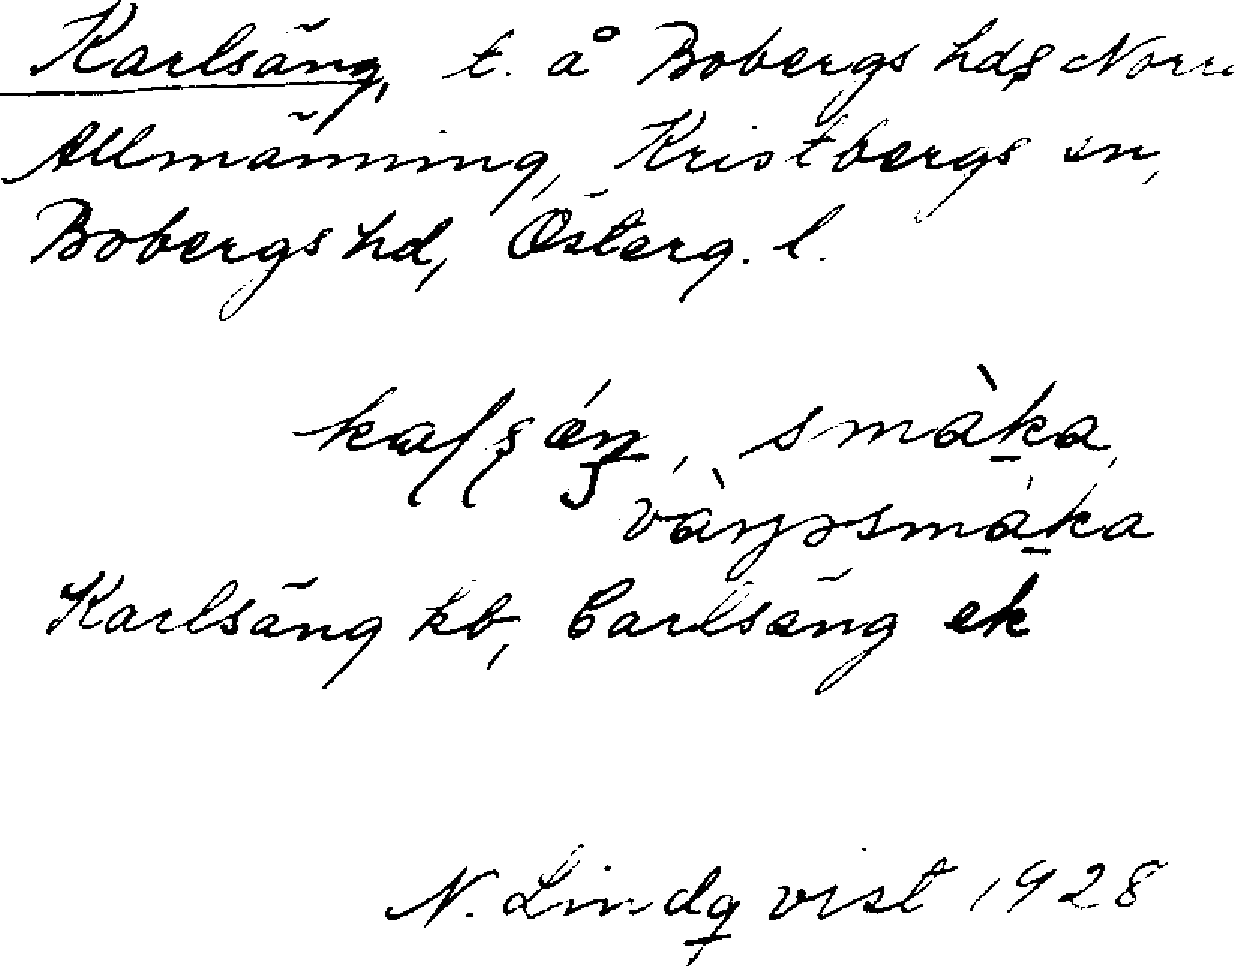 Karlsäng, t. å Bobergs hds Norra
Allmänning, Kristbergs sn,
Bobergs hd, Österg. l.
smàka,
Karlsäng kb, Carlsäng ek
N. Lindqvist 1928